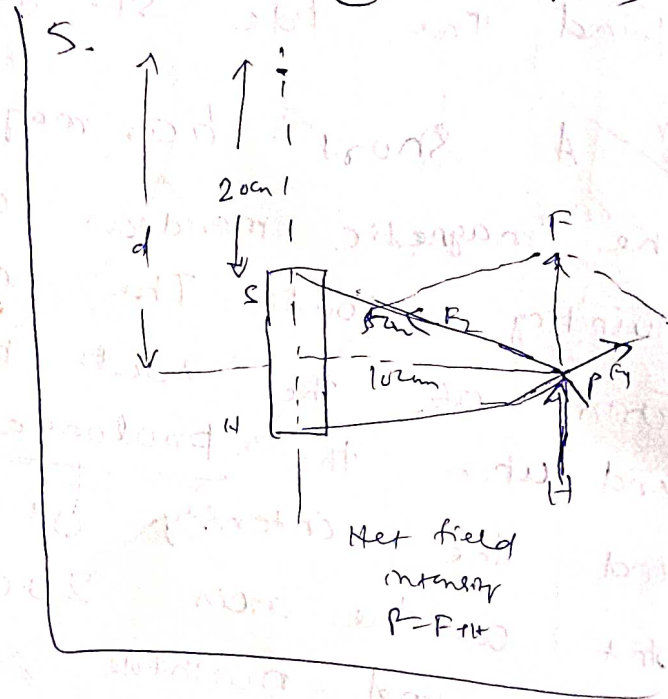 5.
20cm
d
F
S
5cm
F2
102cm
P
F1
N
H
Net field
intensity
P=F+H